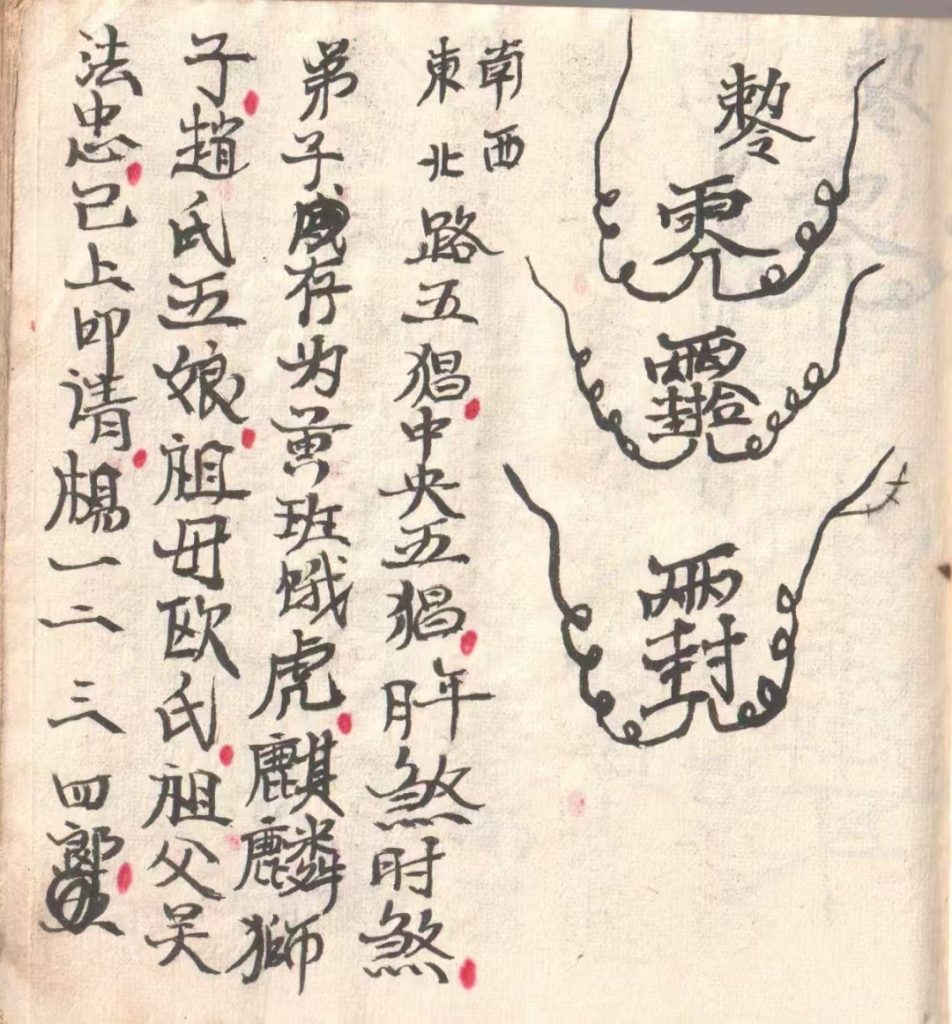 勅令
南西
東北路五猖中央五猖年月煞时煞
弟子存为黄班饿虎麒麟獅
子趙氏五娘祖母欧氏祖父吴
法忠已上叩请楊一二三四郎